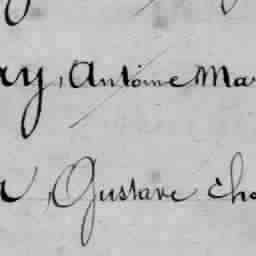 ry, Antoine Ma
r, Gustave Cha